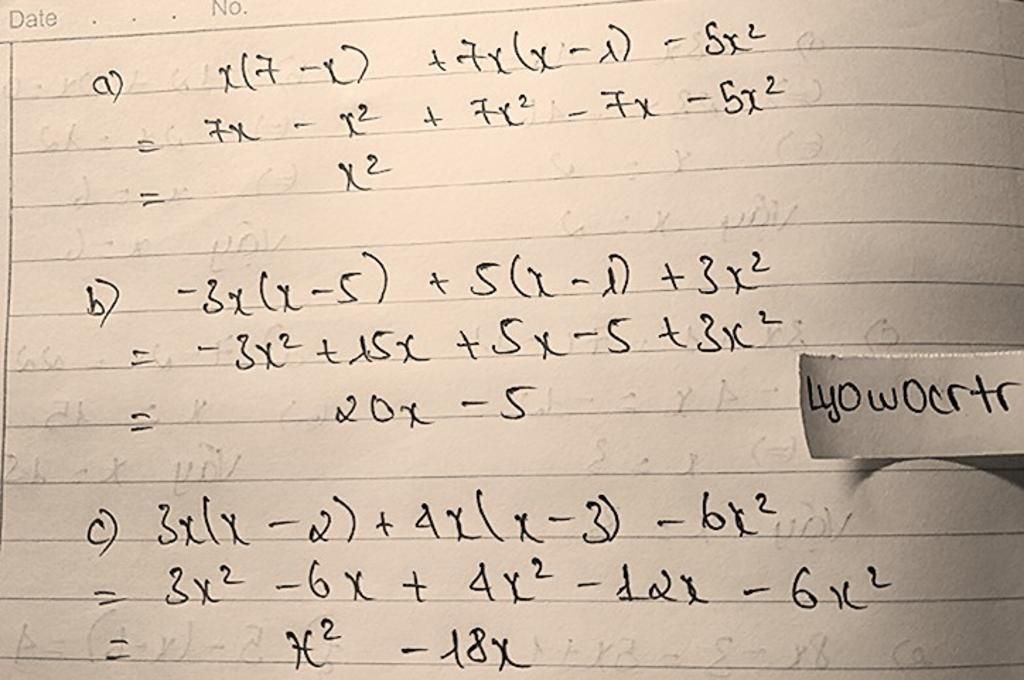 Date . . . No.
a) x(7 - x) + 7x(x - 1) - 5x²
= 7x - x² + 7x² - 7x - 5x²
= x²
b) -3x(x - 5) + 5(x - 1) + 3x²
= -3x² + 15x + 5x - 5 + 3x²
= 20x - 5
LyOwOcrtr
c) 3x(x - 2) + 4x(x - 3) - 6x²
= 3x² - 6x + 4x² - 12x - 6x²
= x² - 18x